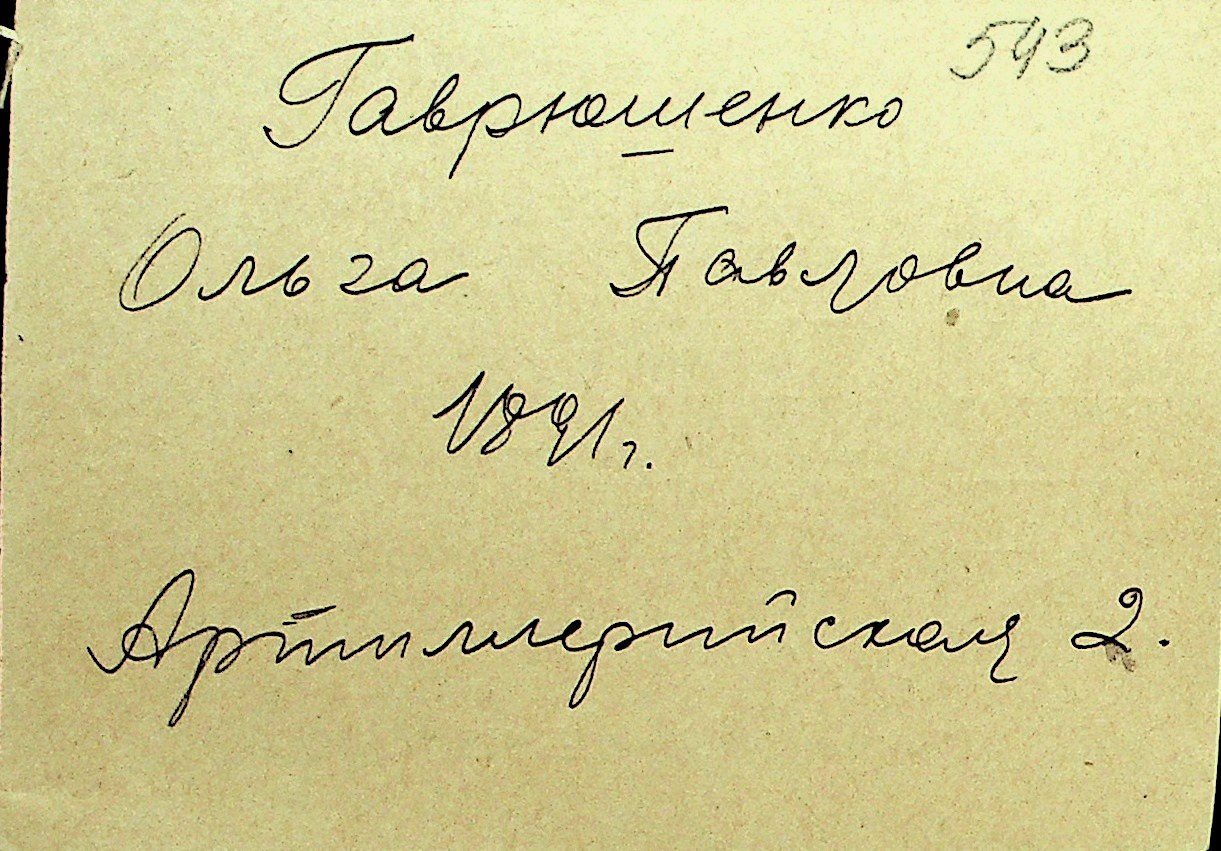 543
Гаврюшенко
Ольга Павловна
1891г.
Артиллерийская 2.